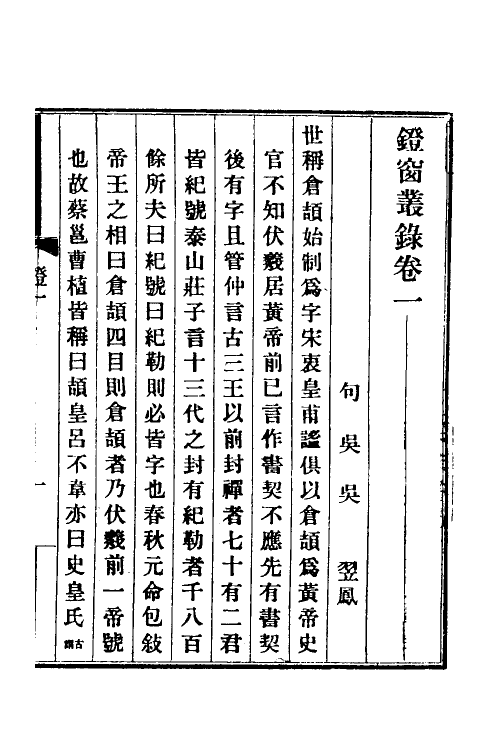 鐙窗叢錄卷一
句吳吳 翌鳳
世稱倉頡始制爲字宋衷皇甫謐俱以倉頡爲黃帝史
官不知伏羲居黃帝前已言作書契不應先有書契
後有字且管仲言古三王以前封禪者七十有二君
皆紀號泰山莊子言十三代之封有紀勒者千八百
餘所夫曰紀號曰紀勒則必皆字也春秋元命包敍
帝王之相曰倉頡四目則倉頡者乃伏羲前一帝號
也故蔡邕曹植皆稱曰頡皇呂不韋亦曰史皇氏
鐙一
一